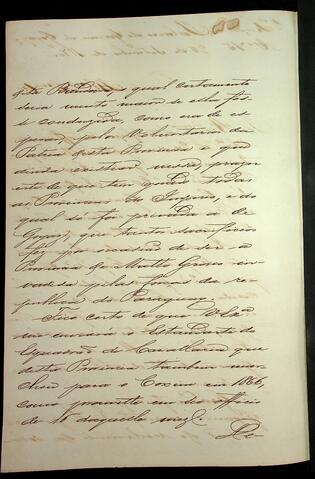 desta Provincia, o qual certamente
seria muito maior se ella fos-
se conduzida, como era de es-
perar, pelos Voluntarios da
Patria desta Provincia e que
ainda existem nesse, prazer
este de que tem gosado todas
as Provincias do Imperio, e do
qual só foi privada a de
Goyaz, que tantos sacrificios
fez por occasião de ser a
Provincia de Matto Grosso in-
vadida pelas forças da re-
publica do Paraguay.
Fico certo de que V. Exª
me enviará o Estandarte do
Esquadrão de Cavallaria que
desta Provincia tambem mar-
chou para o Coxim em 1866,
como promette em seo officio
de 15 daquelle mez.